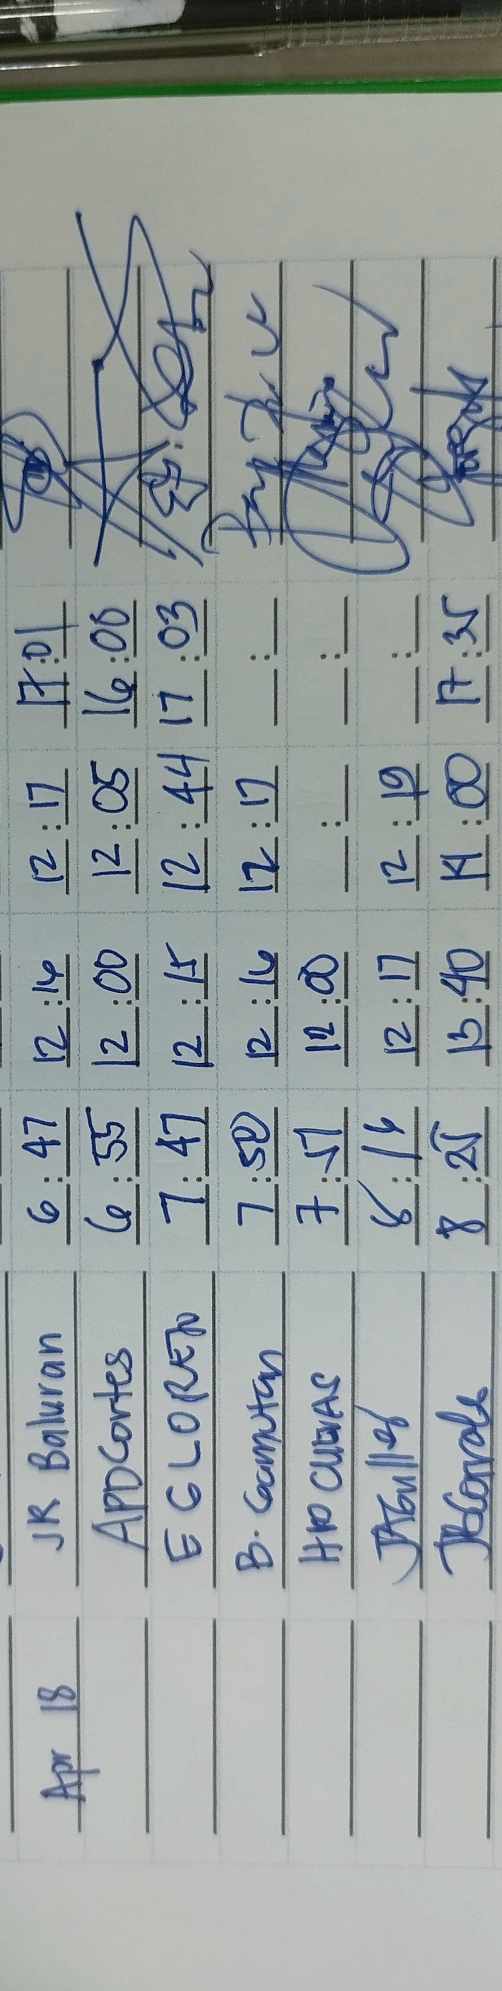 Apr 18 JR Baluran 6:47 12:16 12:17 17:01
APDCortes 6:55 12:00 12:05 16:06
EGLOREN 7:47 12:15 12:44 17:03
B. Gamutan 7:50 12:16 12:17 __:__
HPO CUEVAS 7:51 12:00 __:__ __:__
8:16 12:17 12:19 __:__
8:25 13:40 14:00 17:35